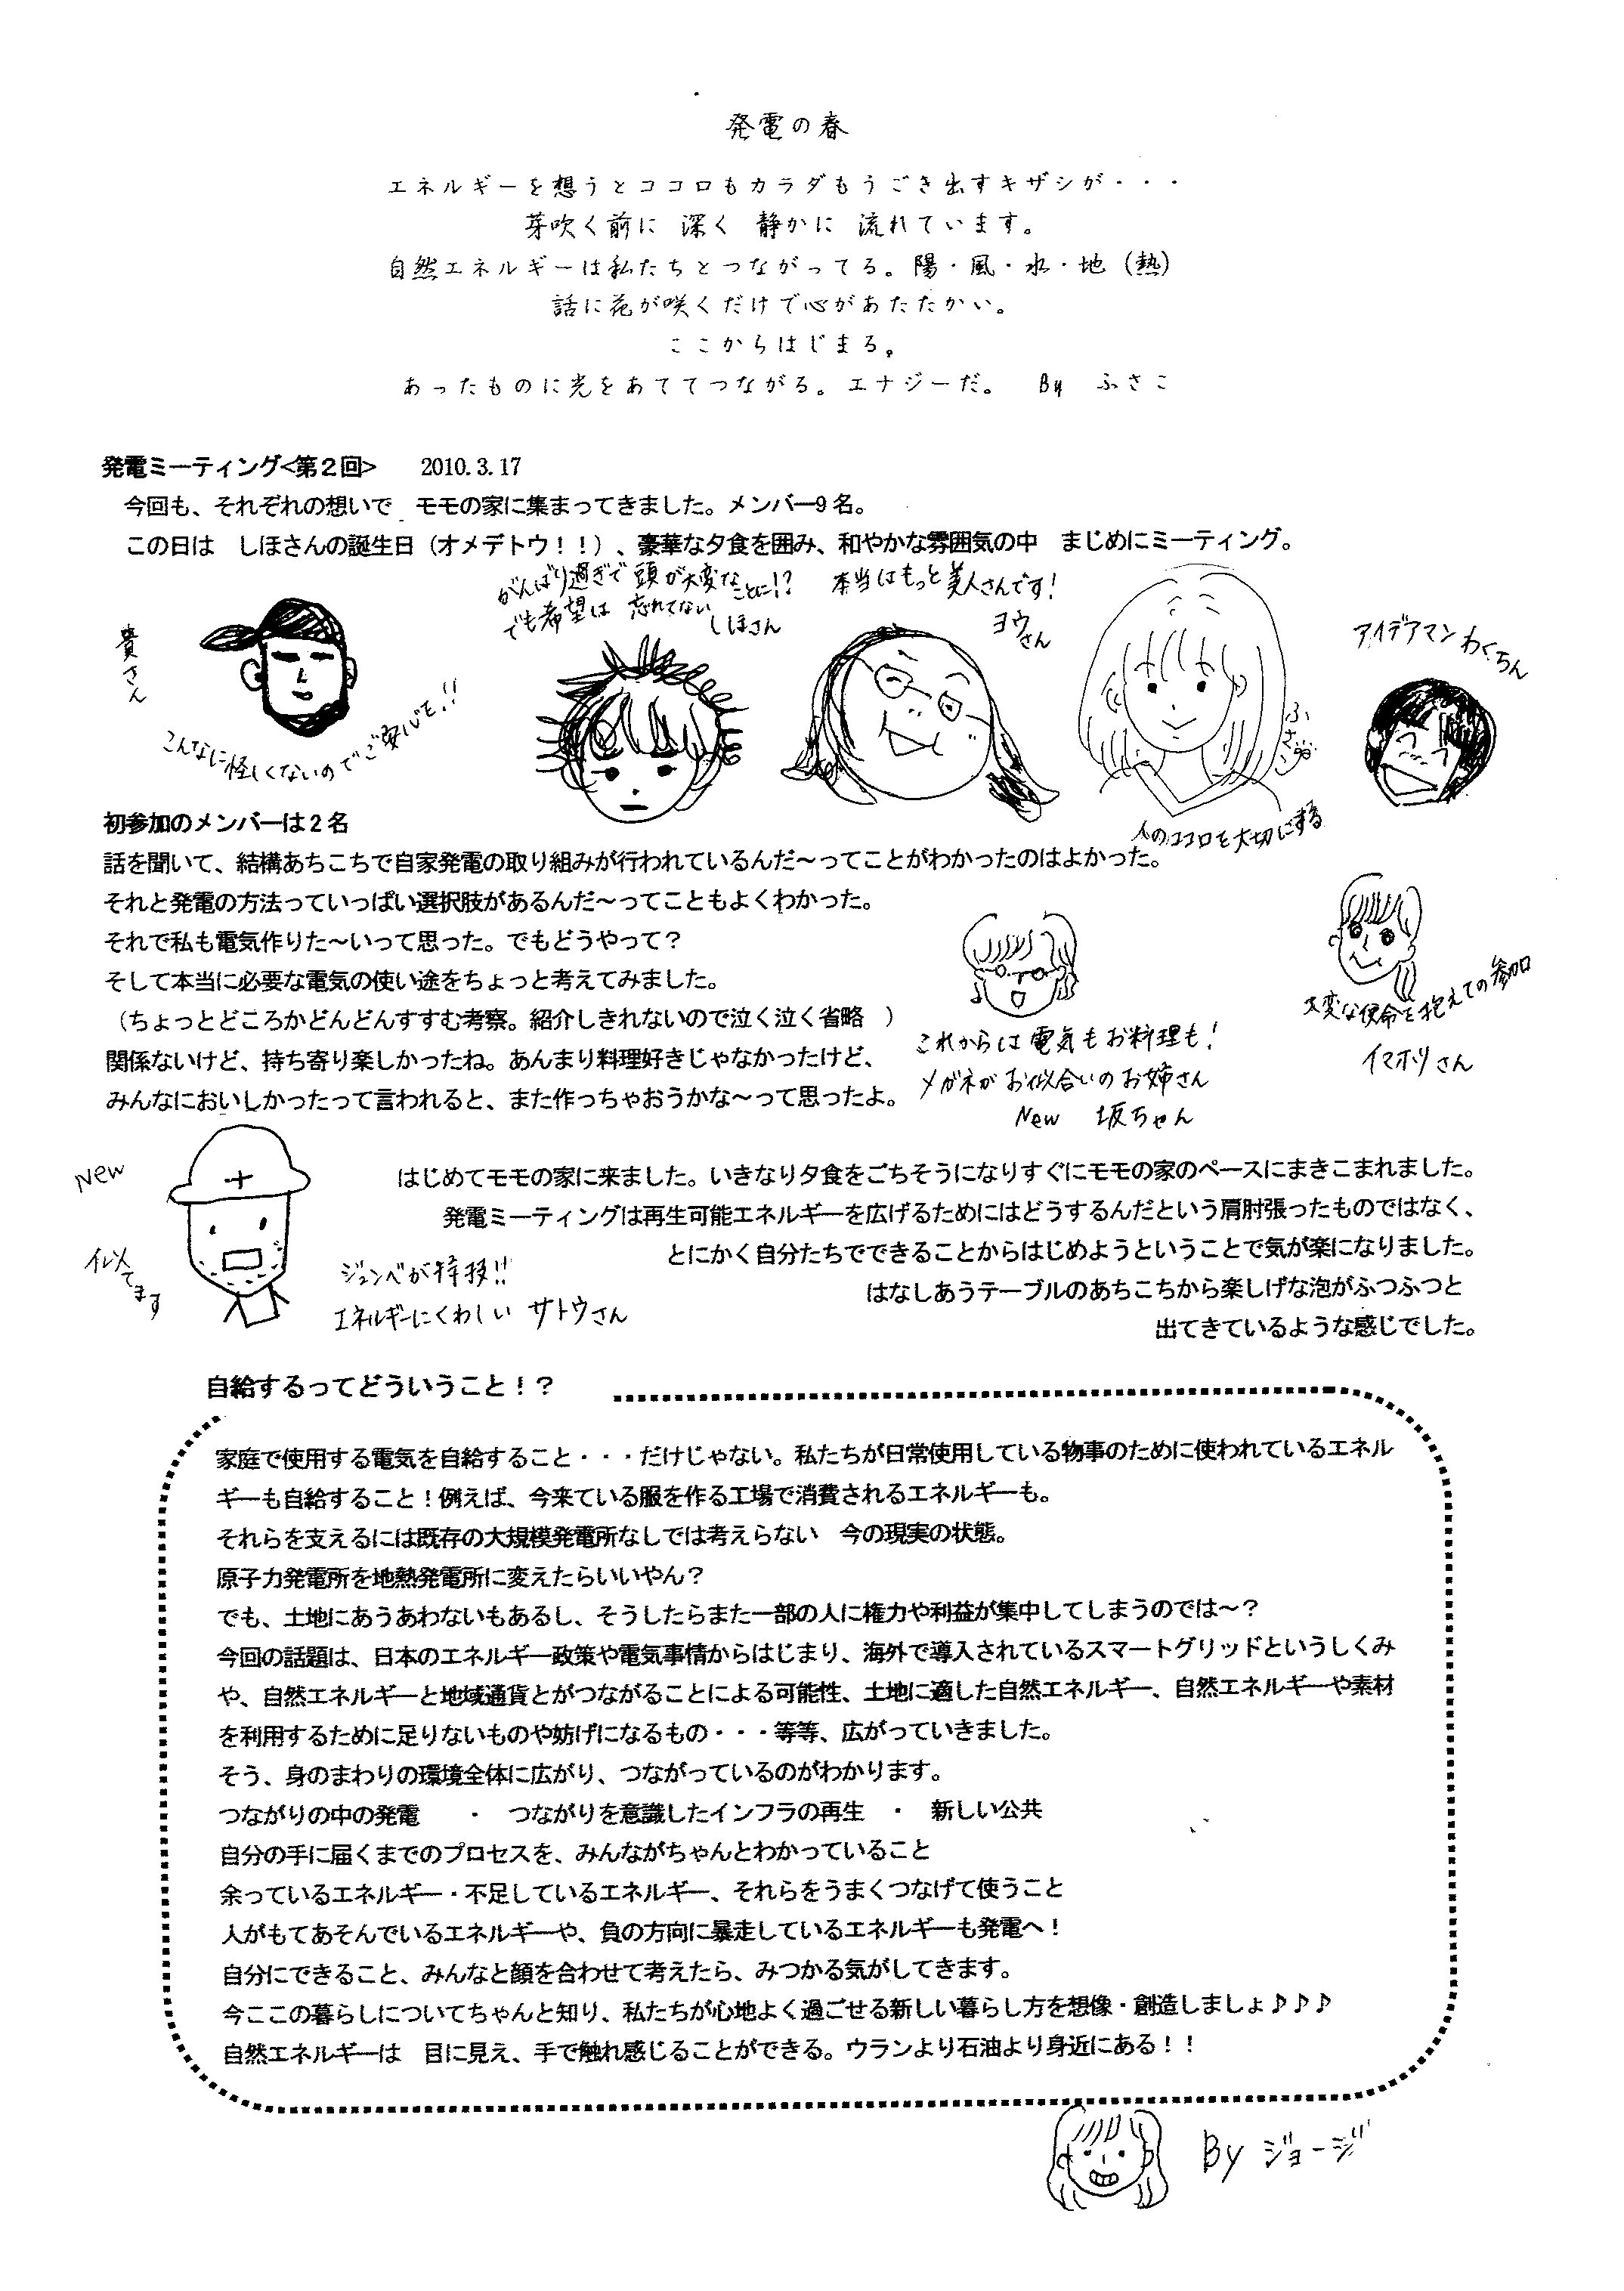 発電の春
エネルギーを想うとココロもカラダもうごき出すキザシが・・・
芽吹く前に 深く 静かに 流れています。
自然エネルギーは私たちとつながってる。陽・風・水・地(熱)
話に花が咲くだけで心があたたかい。
ここからはじまる。
あったものに光をあててつながる。エナジーだ。 By ふさこ
発電ミーティング<第2回> 2010.3.17
今回も、それぞれの想いで モモの家に集まってきました。メンバー9名。
この日は しほさんの誕生日(オメデトウ!!)、豪華な夕食を囲み、和やかな雰囲気の中 まじめにミーティング。
貴さん
こんなに怪しくないのでご安心を!!
がんばり過ぎで頭が大変なことに!?
でも希望は 忘れてない
しほさん
本当はもっと美人さんです!
ヨウさん
ふさこさん
人のココロを大切にする
アイデアマン わくちん
初参加のメンバーは2名
話を聞いて、結構あちこちで自家発電の取り組みが行われているんだ~ってことがわかったのはよかった。
それと発電の方法っていっぱい選択肢があるんだ~ってこともよくわかった。
それで私も電気作りた~いって思った。でもどうやって?
そして本当に必要な電気の使い途をちょっと考えてみました。
(ちょっとどころかどんどんすすむ考察。紹介しきれないので泣く泣く省略 )
関係ないけど、持ち寄り楽しかったね。あんまり料理好きじゃなかったけど、
みんなにおいしかったって言われると、また作っちゃおうかな~って思ったよ。
これからは電気もお料理も!
メガネがお似合いのお姉さん
New 坂ちゃん
大変な使命を抱えての参加
イマホリさん
New
似てます
ジュンベが特技!!
エネルギーにくわしい サトウさん
はじめてモモの家に来ました。いきなり夕食をごちそうになりすぐにモモの家のペースにまきこまれました。
発電ミーティングは再生可能エネルギーを広げるためにはどうするんだという肩肘張ったものではなく、
とにかく自分たちでできることからはじめようということで気が楽になりました。
はなしあうテーブルのあちこちから楽しげな泡がふつふつと
出てきているような感じでした。
自給するってどういうこと!?
家庭で使用する電気を自給すること・・・だけじゃない。私たちが日常使用している物事のために使われているエネル
ギーも自給すること!例えば、今来ている服を作る工場で消費されるエネルギーも。
それらを支えるには既存の大規模発電所なしでは考えらない 今の現実の状態。
原子力発電所を地熱発電所に変えたらいいやん?
でも、土地にあうあわないもあるし、そうしたらまた一部の人に権力や利益が集中してしまうのでは~?
今回の話題は、日本のエネルギー政策や電気事情からはじまり、海外で導入されているスマートグリッドというしくみ
や、自然エネルギーと地域通貨とがつながることによる可能性、土地に適した自然エネルギー、自然エネルギーや素材
を利用するために足りないものや妨げになるもの・・・等等、広がっていきました。
そう、身のまわりの環境全体に広がり、つながっているのがわかります。
つながりの中の発電 ・ つながりを意識したインフラの再生 ・ 新しい公共
自分の手に届くまでのプロセスを、みんながちゃんとわかっていること
余っているエネルギー・不足しているエネルギー、それらをうまくつなげて使うこと
人がもてあそんでいるエネルギーや、負の方向に暴走しているエネルギーも発電へ!
自分にできること、みんなと顔を合わせて考えたら、みつかる気がしてきます。
今ここの暮らしについてちゃんと知り、私たちが心地よく過ごせる新しい暮らし方を想像・創造しましょ♪♪♪
自然エネルギーは 目に見え、手で触れ感じることができる。ウランより石油より身近にある!!
By ジョージ